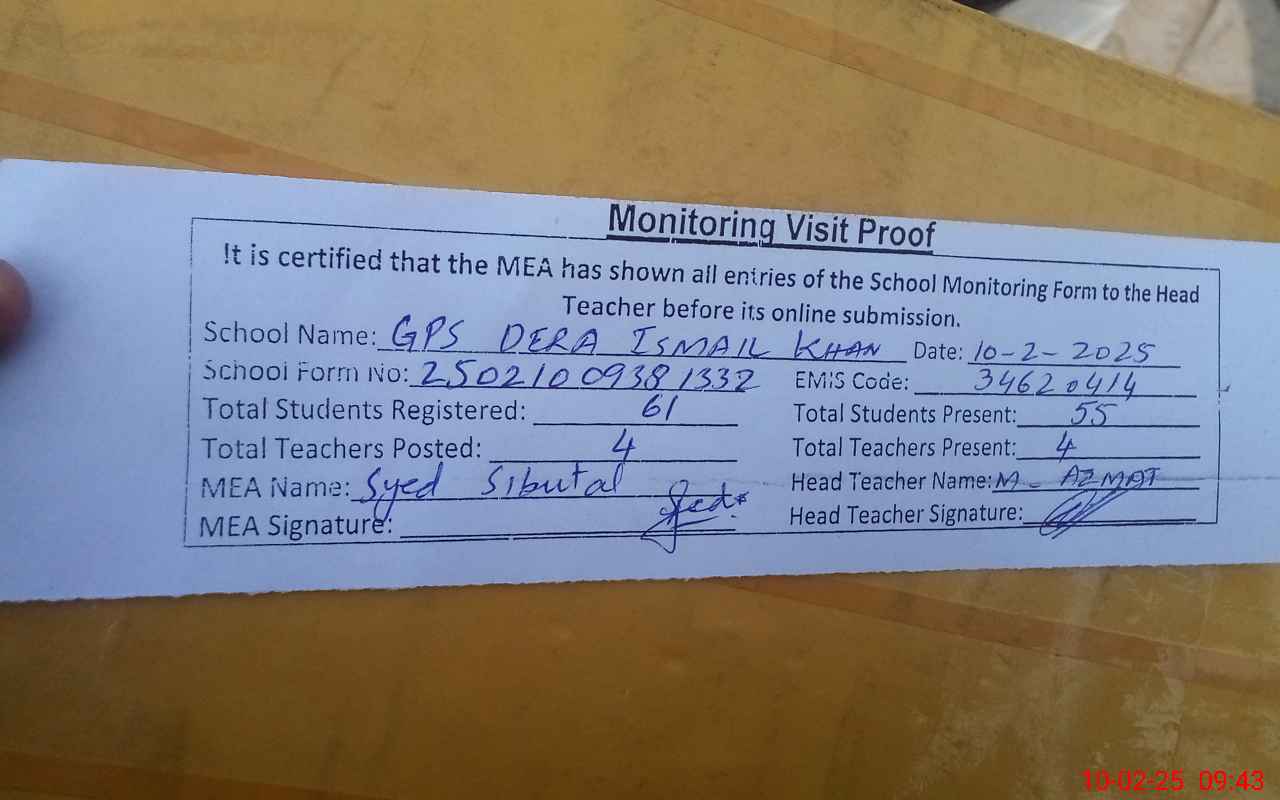 Monitoring Visit Proof
It is certified that the MEA has shown all entries of the School Monitoring Form to the Head
Teacher before its online submission.
School Name: GPS DERA ISMAIL KHAN Date: 10-2-2025
School Form No: 25021009381332 EMIS Code: 34620414
Total Students Registered: 61 Total Students Present: 55
Total Teachers Posted: 4 Total Teachers Present: 4
MEA Name: Syed Sibutal Head Teacher Name: M- AZMAT
MEA Signature: Head Teacher Signature:
10-02-25 09:43